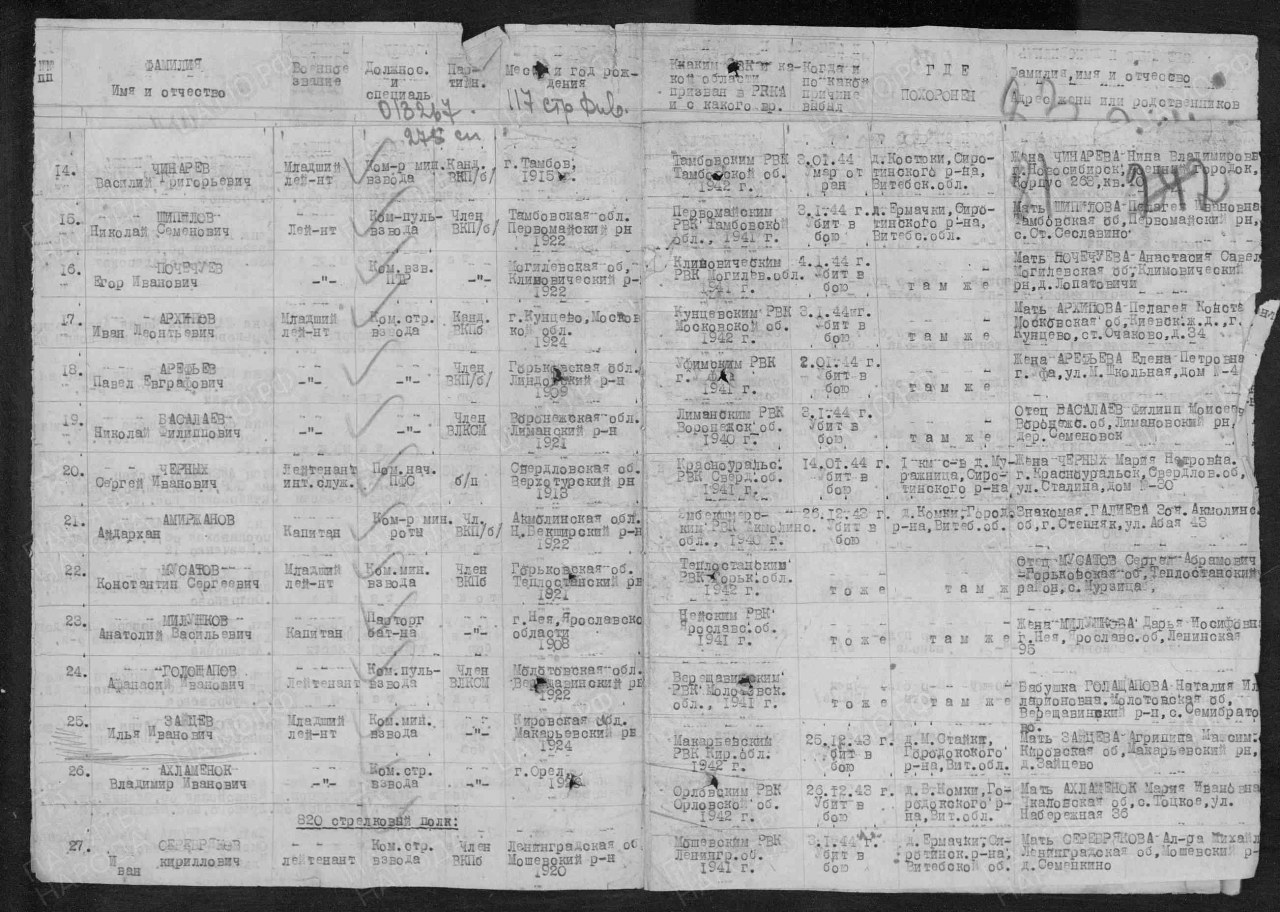 ФАМИЛИЯ
Имя и отчество
Военное звание
Должнос. и специаль
Пар-тийн.
Место и год рождения
Каким РВК и какой области призван в РККА и с какого вр.
Когда и по какой причине выбыл
ГДЕ ПОХОРОНЕН
Фамилия, имя и отчество
Адрес жены или родственников
013267.
117 стр див.
275 сп
242
14. ЧИНАРЕВ Василий Григорьевич
Младший лей-нт
Ком-р мин. взвода
Канд. ВКП/б/
г. Тамбов, 1915 г.
Тамбовским РВК Тамбовской об. 1942 г.
3.01.44 Умер от ран
д.Костюки, Сиротинского р-на, Витебск.обл.
Жена ЧИНАРЕВА Нина Владимировн г.Новосибирск,
15. ШИПИЛОВ Николай Семенович
Лей-нт
Ком-пуль-взвода
Член ВКП/б/
Тамбовская обл. Первомайский рн 1922
Первомайским РВК Тамбовской обл., 1941 г.
3.1.44 г. Убит в бою
д. Ермачки, Сиротинского р-на, Витебс.обл.
Мать ШИПИЛОВА Пелагея Ивановна Тамбовская об, Первомайский рн, с.Ст.Сеславино
16. ПОЧЕЧУЕВ Егор Иванович
-"-
Ком.взв. ПТР
-"-
Могилевская об, Климовический р- 1922
Климовическим РВК Могилев.обл. 1941 г.
4.1.44 г. Убит в бою
там же
Мать ПОЧЕЧУЕВА Анастасия Савел Могилевская об, Климовический рн, д.Лопатовичи
17. АРХИПОВ Иван Леонтьевич
Младший лей-нт
Ком.стр. взвода
Канд. ВКПб
г.Кунцево, Москов кой обл. 1924
Кунцевским РВК Московской об. 1942 г.
3.1.44 г. Убит в бою
там же
Мать АРХИПОВА Пелагея Конста Московская об, Киевск.ж.д., г. Кунцево, ст.Очаково, д.34
18. АРЕФЬЕВ Павел Евграфович
-"-
-"-
Член ВКП/б/
Горьковская обл. р-н 1909
Уфимским РВК г. 1941 г.
2.01.44 г. Убит в бою
там же
Жена АРЕФЬЕВА Елена Петровна г.Уфа, ул.М.Школьная, Дом
19. ВАСАЛАЕВ Николай Филиппович
-"-
-"-
Член ВЛКСМ
Воронежская обл. Лиманский р-н 1921
Лиманским РВК Воронежск об. 1940 г.
3.1.44 г. Убит в бою
там же
Отец ВАСАЛАЕВ Филипп Моисеев Воронежс.об, Лимановский рн, дер.Семеновск
20. ЧЕРНЫХ Сергей Иванович
Лейтенант инт.служ.
Пом.нач. ПФС
б/п
Свердловская об. Верхотурский рн 1913
Красноуральс. РВК Сверд.об. 1941 г.
14.01.44 г. Убит в бою
1 км с-в д.Муражница, Сиротинского р-на
Жена ЧЕРНЫХ Мария Петровна. г.Красноуральск, Свердлов.об, ул.Сталина, Дом
21. АМИРЖАНОВ Айдархан
Капитан
Ком-р мин. роты
Чл. ВКП/б/
Акмолинская обл. 1922
РВК Акмолинс. обл.,
26.12.43 г. Убит в бою
д.Комки, Город. р-на, Витеб.об.
Знакомая ГАЛИЕВА Зоя. Акмолинс. об, г.Степняк, ул.Абая 43
22. МУСАТОВ Константин Сергеевич
Младший лей-нт
Ком.мин. взвода
Член ВКПб
Горьковская об. Теплостанский рн 1921
Теплостанским РВК Горьк.обл. 1942 г.
тоже
там же
Отец МУСАТОВ Сергей Абрамович Горьковская об, Теплостанский район, с.Мурзица,
23. МИЛУШКОВ Анатолий Васильевич
Капитан
Парторг бат-на
-"-
г.Нея, Ярославско области 1908
Нейским РВК Ярославс.об. 1941 г.
тоже
там же
Жена МИЛУШКОВА Дарья Иосифовна г.Нея, Ярославс.об, Ленинская 95
24. ГОЛОЩАПОВ Афанасий Иванович
Лейтенант
Ком.пуль-взвода
Член ВЛКСМ
Молотовская обл. Верещагинский рн 1922
РВК Молотовск. обл., 1941 г.
тоже
там же
Бабушка ГОЛАЩАПОВА Наталия Ил ларионовна. Молотовская об, р-н, с.Семибрато во.
25. ЗАЙЦЕВ Илья Иванович
Младший лей-нт
Ком.мин. взвода
-"-
Кировская обл. Макарьевский рн 1924
Макарьевским РВК Кир.обл. 1942 г.
25.12.43 г. Убит в бою
д.М.Стайки, Городокского р-на, Вит.обл.
Мать ЗАЙЦЕВА Агрипина Максим: Кировская об, Макарьевский рн, д.Зайцево
26. АХЛАМЕНОК Владимир Иванович
-"-
Ком.стр. взвода
-"-
г.Орел,
Орловским РВК Орловской об. 1942 г.
26.12.43 г. Убит в бою
д.В.Комки, Городокского р-на, Вит.обл.
Мать АХЛАМЕНОК Мария Ивановна Чкаловская об, с.Тоцкое, ул. Набережная 36
820 стрелковый полк:
27. кириллович
лейтенант
Ком.стр. взвода
Член ВКПб
Ленинградская об Мошевский р-н 1920
Мошевским РВК Ленингр.об. 1941 г.
3.1.44 г. Убит в бою
д. Ермачки, Сиротинск.р-на, Витебской об.
Мать СЕРЕБРЯКОВА Ал-ра Михайл Ленинградская об, Мошевский р- д.Семенкино